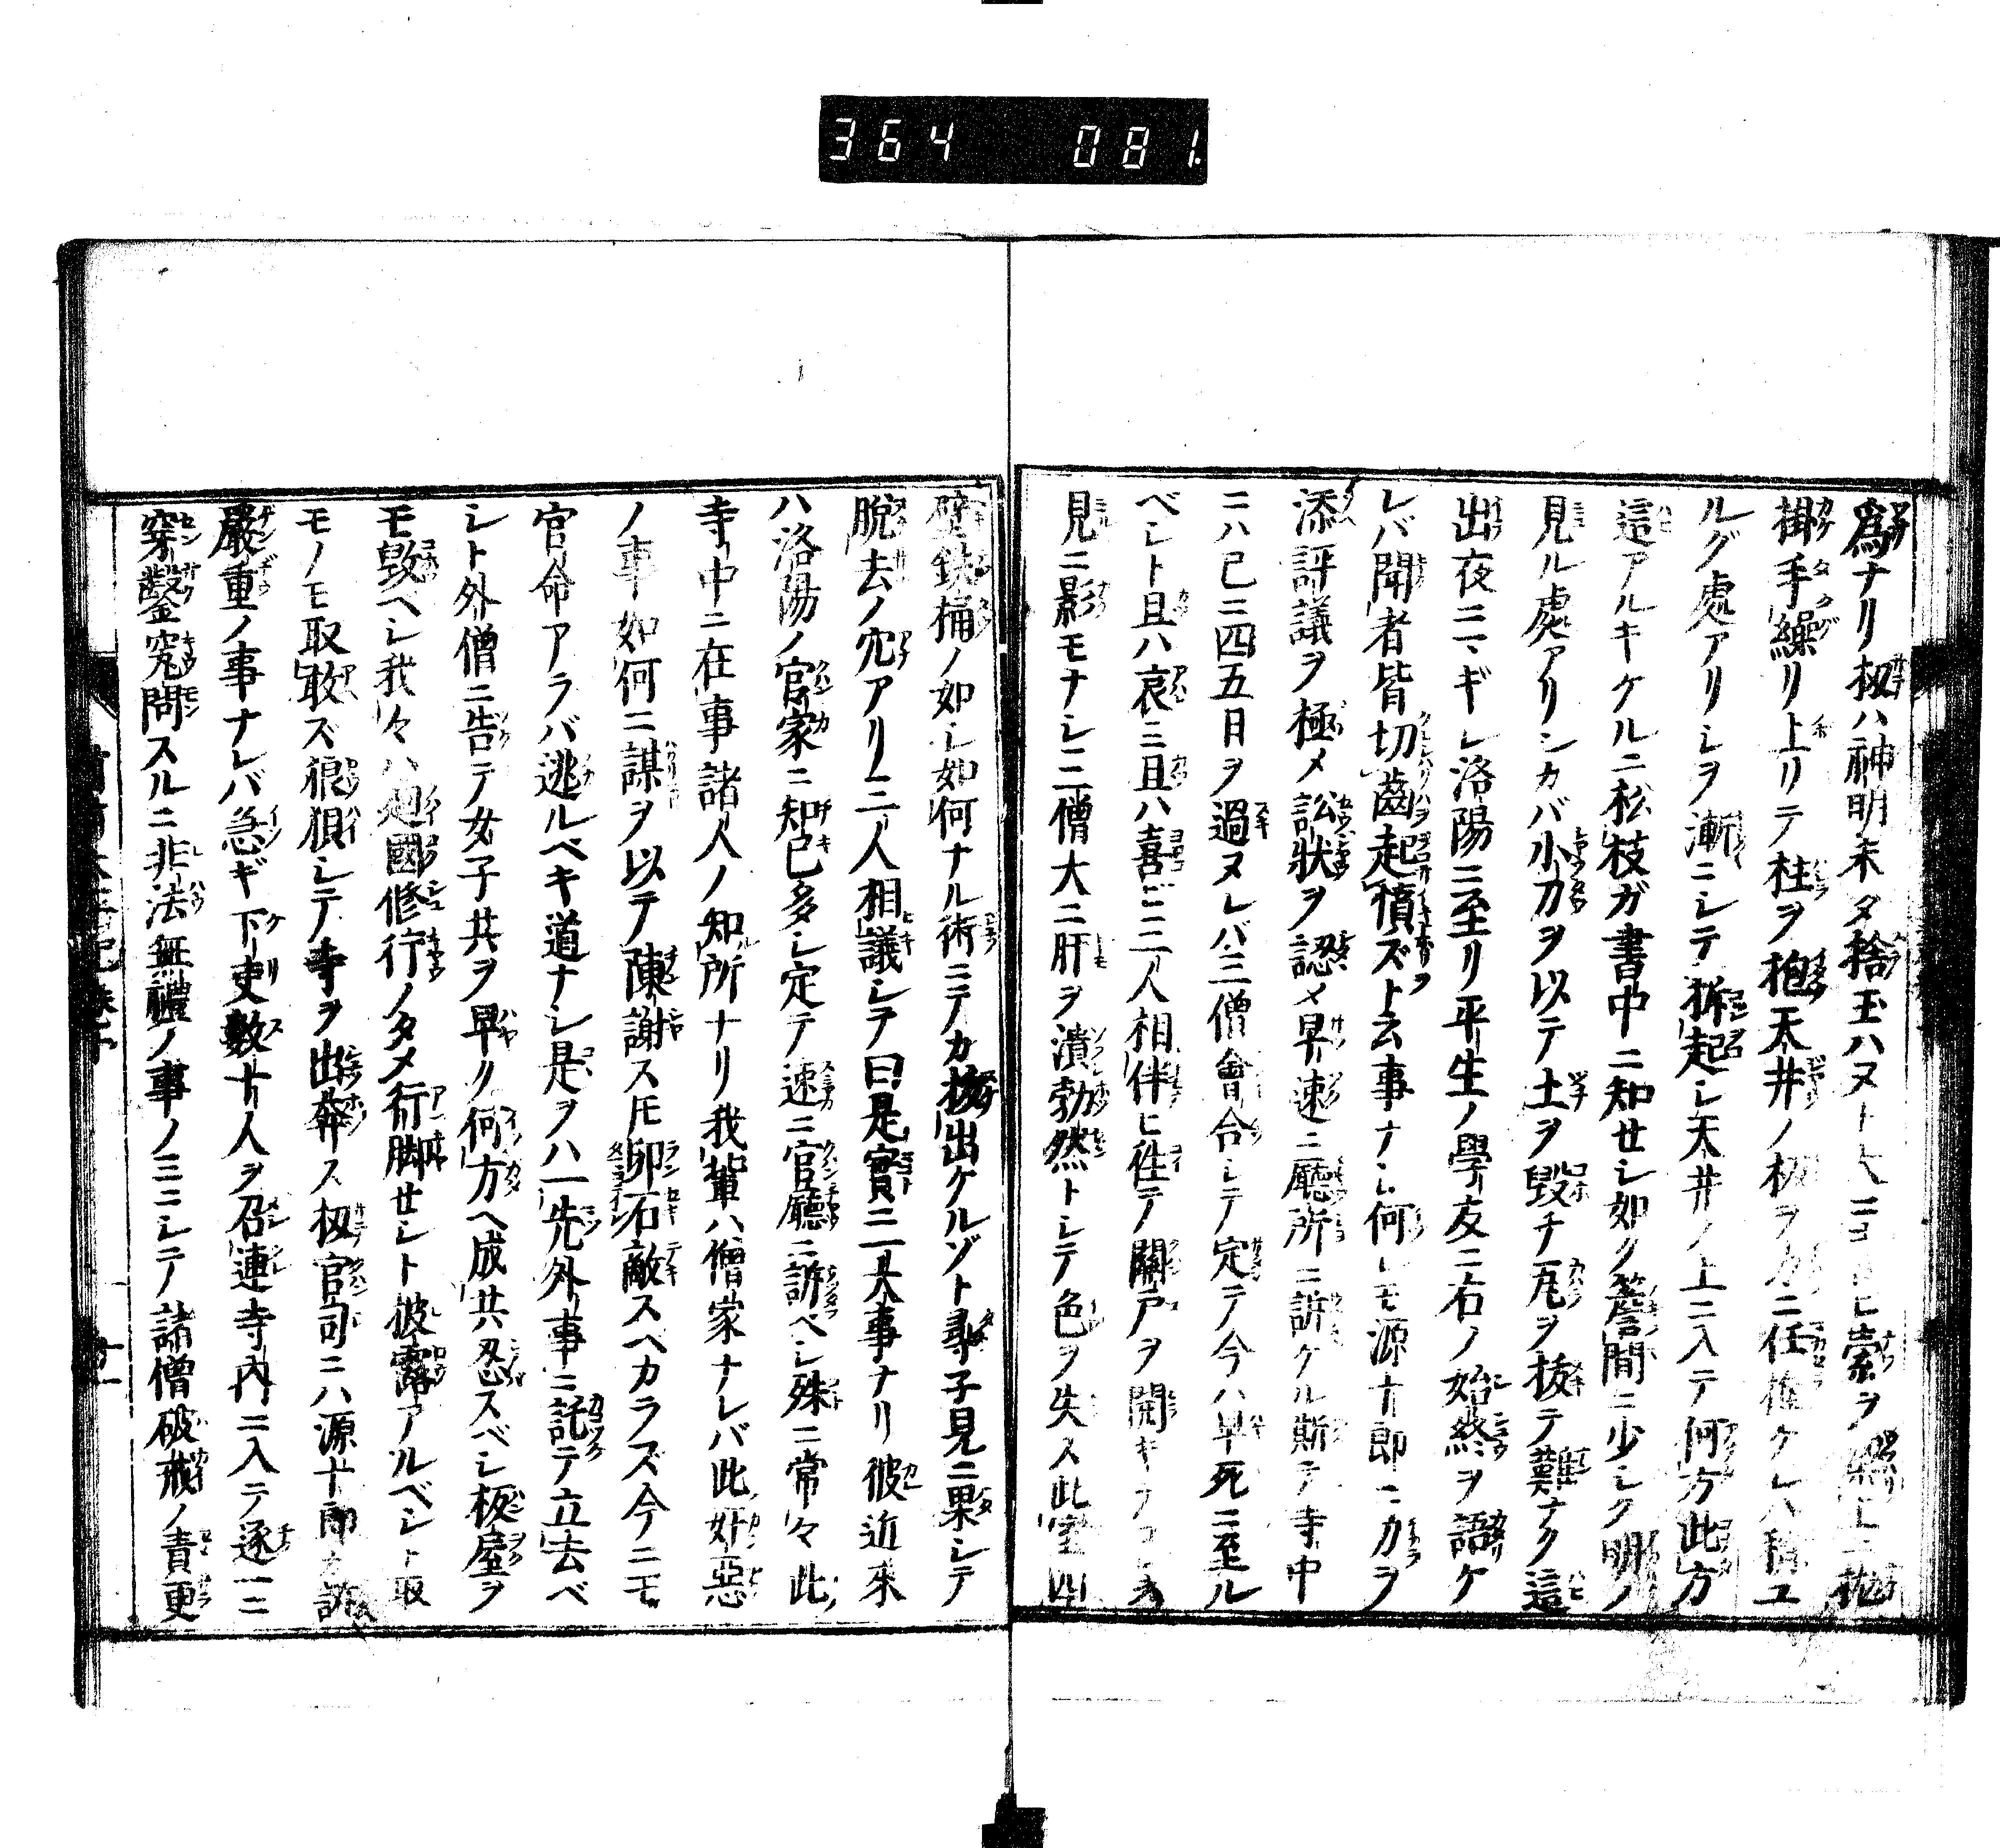 364 081
爲ナリ扨ハ神明未タ捨玉ハヌト大ニヨロコヒ索ヲ
掛手繰リ上リテ柱ヲ抱天井ノ板ヲ力ニ任
ルグ處アリシヲ漸ニシテ拆起シ天井ノ上ニ入テ何方此方
這アルキケルニ松枝ガ書中ニ知セシ如ク簷間ニ少シク明ノ
見ル處アリシカバ小刀ヲ以テ土ヲ毀チ瓦ヲ抜テ難ナク這
出夜ニマギレ洛陽ニ至リ平生ノ學友ニ右ノ始終ヲ語ケ
レバ聞者皆切齒起憤ズト云事ナシ何レモ源十郎ニカヲ
添評議ヲ極メ訟狀ヲ認メ早速ニ廳所ニ訴ケル斯テ寺中
ニハ已ニ四五日ヲ過ヌレバ三僧會合シテ定テ今ハ早死ニ至ル
ベシト且ハ哀ミ且ハ喜ビ二三人相伴ヒ徃テ關戸ヲ開キ
見ニ影モナシ二僧大ニ肝ヲ潰勃然トシテ色ヲ失ス此室四
壁鉄桶ノ如シ如何ナル術ニテカ抜出ケルゾト尋子見ニ果シテ
脫去ノ穴アリ三人相議シテ曰是實ニ一大事ナリ彼近來
ハ洛陽ノ官家ニ知已多シ定テ速ニ官廳ニ訴ベシ殊ニ常々此
寺中ニ在事諸人ノ知所ナリ我輩ハ僧家ナレバ此奸惡
ノ事如何ニ謀ヲ以テ陳謝ス𪜈卵石敵スベカラズ今ニモ
官命アラバ逃ルベキ道ナシ是ヲハ一先外事ニ託テ立去ベ
シト外僧ニ告テ女子共ヲ早ク何方ヘ成共忍スベシ板屋ヲ
モ毀ヘシ我々ハ廻國修行ノタメ行脚セシト彼露アルベシト取
モノモ取敢ズ狼狽シテ寺ヲ出奔ス扨官司ニハ源十郎カ訴
嚴重ノ事ナレバ急ギ下吏數十人ヲ召連寺內ニ入テ逐一ニ
穿鑿究問スルニ非法無禮ノ事ノミニシテ諸僧破戒ノ責更